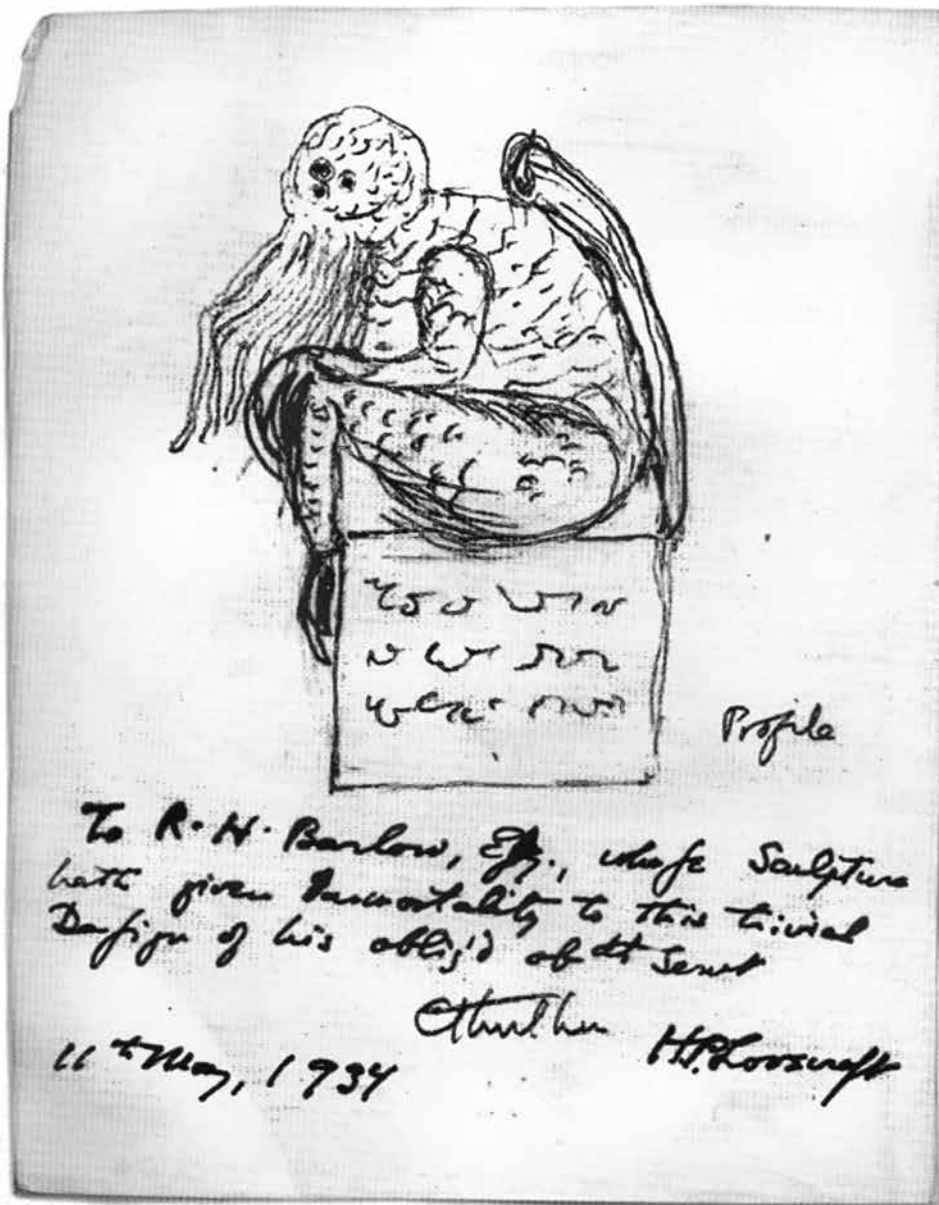 Profile
To R. H. Barlow, Esq., whoſe Sculpture
hath given Immortality to this trivial
Deſign of his oblig'd obdt Servt
Cthulhu
H.P. Lovecraft
11th May, 1934